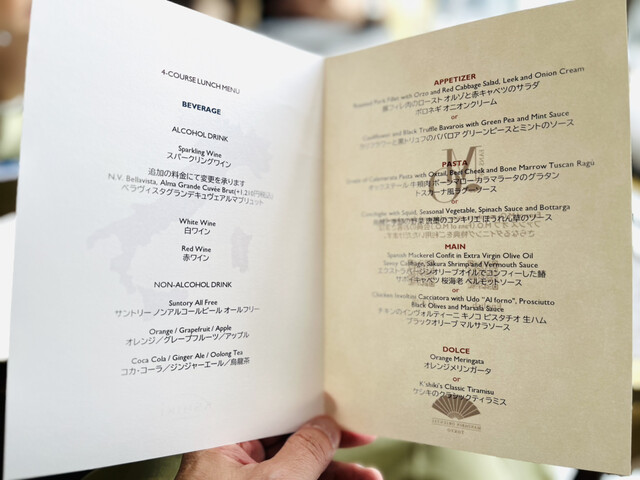 4-COURSE LUNCH MENU
BEVERAGE
ALCOHOL DRINK
Sparkling Wine
スパークリングワイン
追加の料金にて変更を承ります
N.V. Bellavista, Alma Grande Cuvée Brut(+1,210円税込)
ベラヴィスタグランデキュヴェアルマブリュット
White Wine
白ワイン
Red Wine
赤ワイン
NON-ALCOHOL DRINK
Suntory All Free
サントリー ノンアルコールビール オールフリー
Orange / Grapefruit / Apple
オレンジ／グレープフルーツ／アップル
Coca Cola / Ginger Ale / Oolong Tea
コカ・コーラ／ジンジャーエール／烏龍茶
APPETIZER
Roasted Pork Fillet with Orzo and Red Cabbage Salad, Leek and Onion Cream
豚フィレ肉のロースト オルゾと赤キャベツのサラダ
ポロネギ オニオンクリーム
or
Cauliflower and Black Truffle Bavarois with Green Pea and Mint Sauce
カリフラワーと黒トリュフのババロア グリーンピースとミントのソース
PASTA
Gratin of Calamarata Pasta with Oxtail, Beef Cheek and Bone Marrow Tuscan Ragù
オックステール 牛頬肉 ボーンマロー カラマラータのグラタン
トスカーナ風ラグーソース
or
with Squid, Seasonal Vegetable, Spinach Sauce and Bottarga
ほうれん草のソース
MAIN
Spanish Mackerel Confit in Extra Virgin Olive Oil
Savoy Cabbage, Sakura Shrimp and Vermouth Sauce
エクストラバージンオリーブオイルでコンフィーした鰆
サボイキャベツ 桜海老 ベルモットソース
or
Chicken Involtini Cacciatora with Udo "Al forno", Prosciutto
Black Olives and Marsala Sauce
チキンのインヴォルティーニ キノコ ピスタチオ 生ハム
ブラックオリーブ マルサラソース
DOLCE
Orange Meringata
オレンジメリンガータ
or
K'shiki's Classic Tiramisu
ケシキのクラシックティラミス